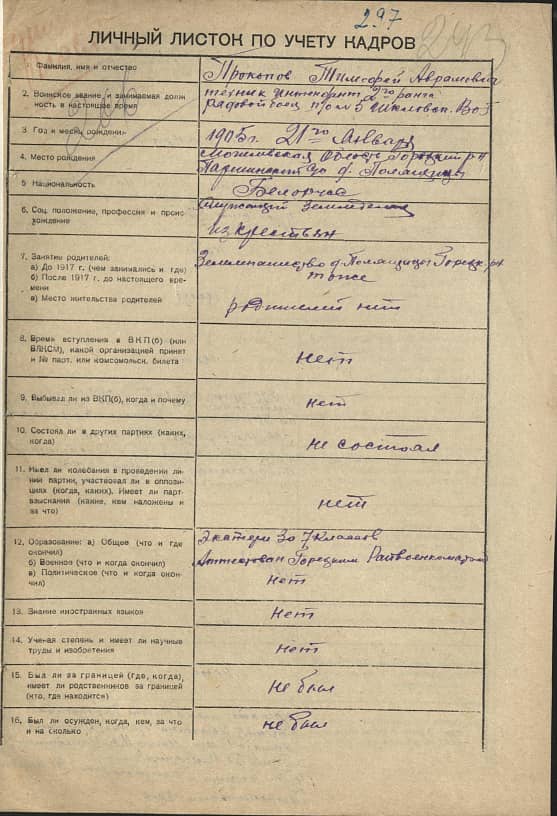 297
293
ЛИЧНЫЙ ЛИСТОК ПО УЧЕТУ КАДРОВ
Фамилия, имя и отчество
Прокопов Тимофей Аврамович
2. Воинское звание и занимаемая долж
ность в настоящее время
техник интендант 2го ранга
рядовой боец
3. Год и месяц рождения
1905г. 21го Января
4. Место рождения
Могилевская область Горецкий р-н
5. Национальность
Белорус
6. Соц. положение, профессия и проис
хождение
служащий
из крестьян
7. Занятие родителей:
а) До 1917 г. (чем занимались и где)
б) После 1917 г. до настоящего вре-
мени
в) Место жительства родителей
тоже
родителей нет
8. Время вступления в ВКП(б) (или
ВЛКСМ), какой организацией принят
и № парт. или комсомольск. билета
нет
9. Выбывал ли из ВКП(б), когда и почему
нет
10. Состоял ли в других партиях (каких,
когда)
не состоял
11. Имел ли колебания в проведении ли-
нии партии, участвовал ли в оппози-
циях (когда, каких). Имеет ли парт-
взыскания (какие, кем наложены и
за что)
нет
12. Образование: а) Общее (что и где
окончил)
б) Военное (что и когда окончил)
в) Политическое (что и когда окон-
чил)
Экстери за 7 классов
Аттестован Горецким Райвоенкоматом
нет
13. Знание иностранных языков
нет
14. Ученая степень и имеет ли научные
труды и изобретения
нет
15. Был ли за границей (где, когда),
имеет ли родственников за границей
(кто, где находится)
не был
16. Был ли осужден, когда, кем, за что
и на сколько
не был